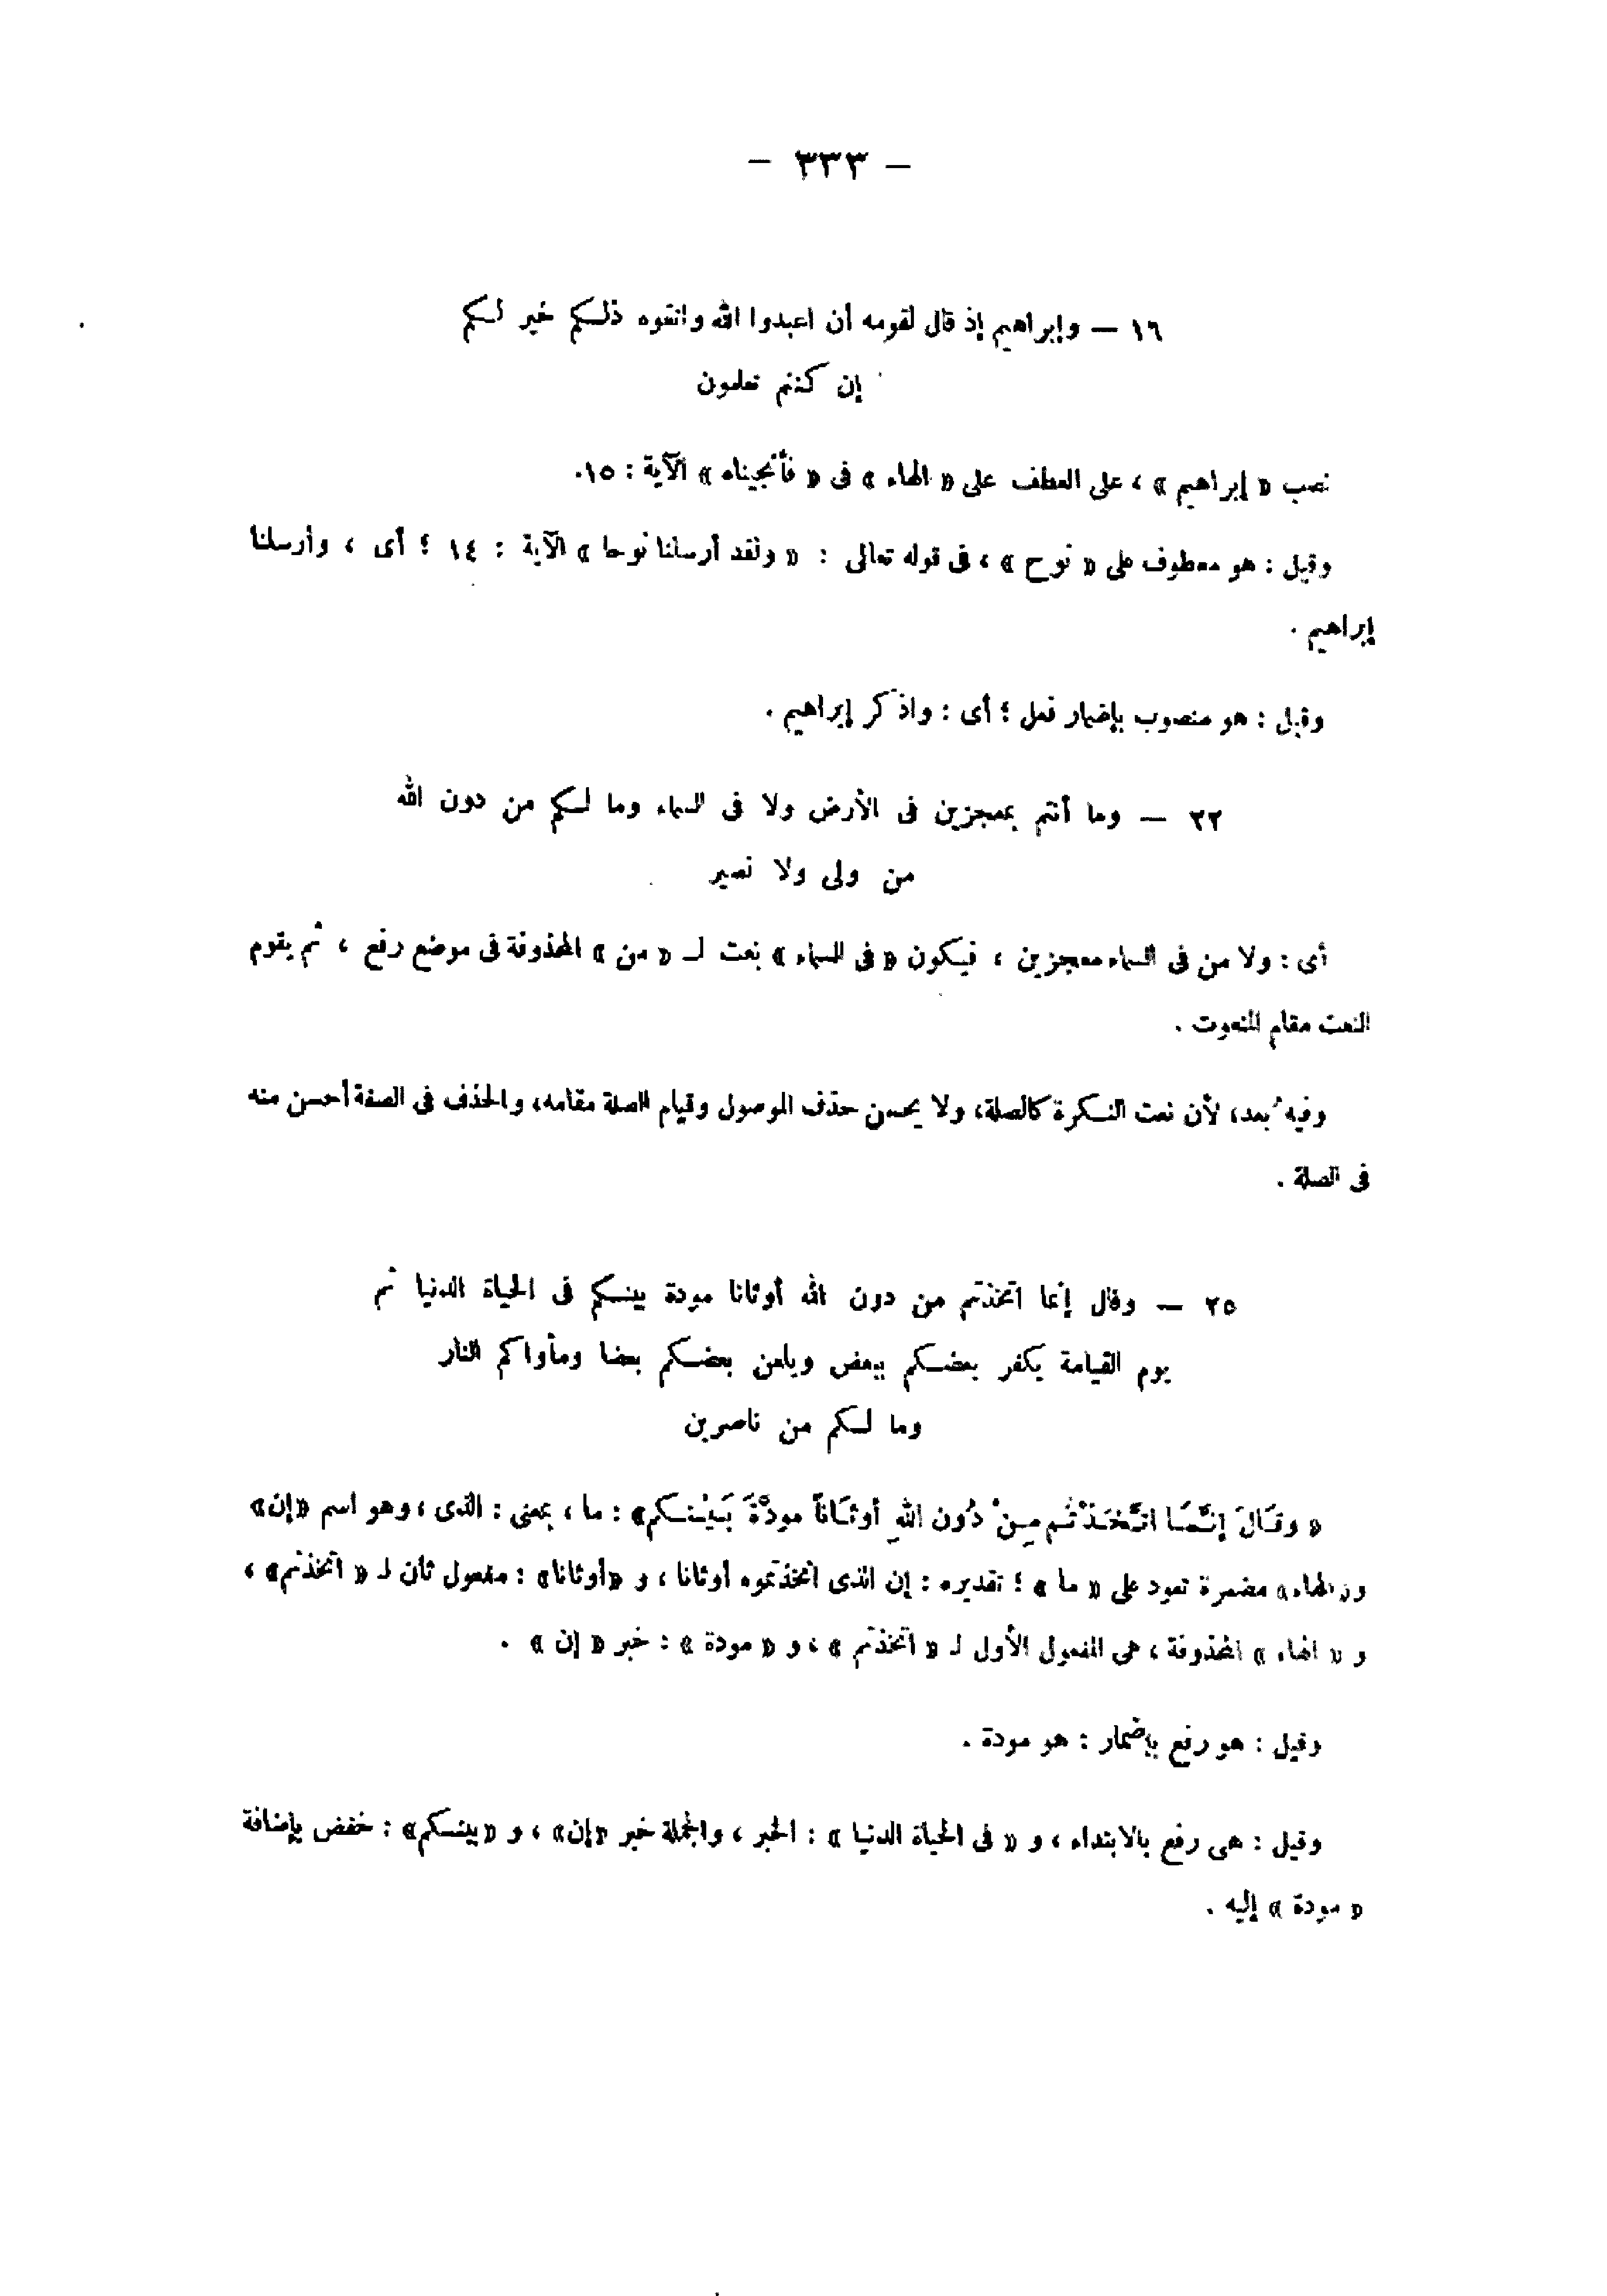 — ٣٣٣ —
١٦ — وإبراهيم إذ قال لقومه أن اعبدوا الله واتقوه ذلكم خير لكم
إن كنتم تعلمون
نصب « إبراهيم » ، على العطف على « الهاء » فى « فأنجيناه » الآية : ١٥.
وقيل : هو معطوف على « نوح » ، فى قوله تعالى : « ولقد أرسلنا نوحا » الآية : ١٤ ؛ أى ، وأرسلنا
إبراهيم .
وقيل : هو منصوب بإضمار فعل ؛ أى : واذكر إبراهيم .
٢٢ — وما أنتم بمعجزين فى الأرض ولا فى السماء وما لكم من دون الله
من ولى ولا نصير
أى : ولا من فى السماء معجزين ، فيكون « فى السماء » نعت لـ « من » المحذوفة فى موضع رفع ، ثم يقوم
النعت مقام المنعوت .
وفيه بُعد، لأن نعت النكرة كالصلة، ولا يحسن حذف الموصول وقيام الصلة مقامه، والحذف فى الصفة أحسن منه
فى الصلة .
٢٥ — وقال إنما اتخذتم من دون الله أوثانا مودة بينكم فى الحياة الدنيا ثم
يوم القيامة يكفر بعضكم ببعض ويلعن بعضكم بعضا ومأواكم النار
وما لكم من ناصرين
« وقَالَ إنَّمَا اتَّخَذْتُم مِنْ دُون اللهِ أوثَاناً مودَّةَ بَيْنَكم» : ما ، بمعنى : الذى ، وهو اسم «إن»
و«الهاء» مضمرة تعود على « ما » ؛ تقديره : إن الذى اتخذتموه أوثانا ، و «أوثانا» : مفعول ثان لـ « اتخذتم» ،
و « الهاء » المحذوفة ، هى المفعول الأول لـ « اتخذتم » ، و « مودة » : خبر « إن » .
وقيل : هو رفع بإضمار : هو مودة .
وقيل : هى رفع بالابتداء ، و « فى الحياة الدنيا » : الخبر ، والجملة خبر «إن» ، و «بينكم» : خفض بإضافة
« مودة » إليه .